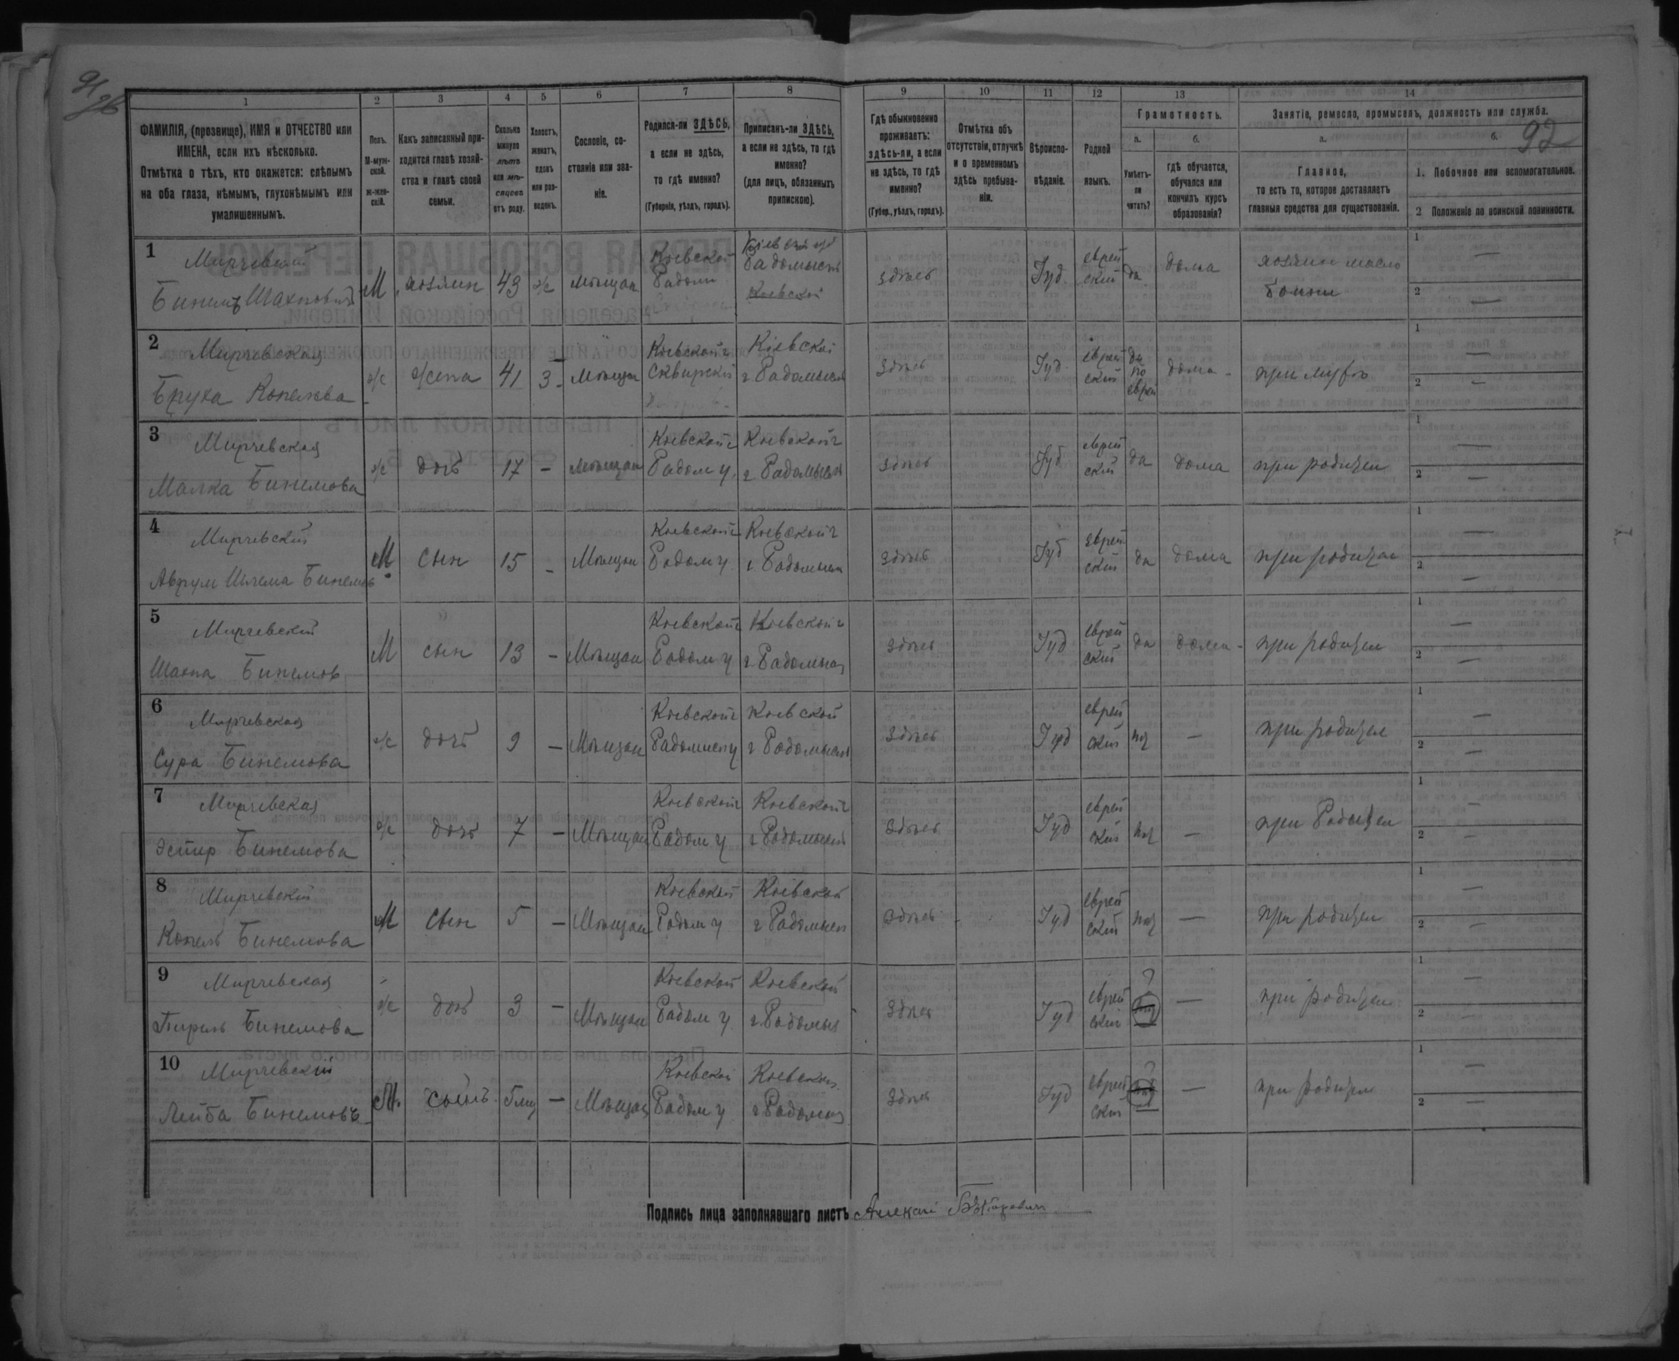 91/96
92
1 2 3 4 5 6 7 8 9 10 11 12 13 14
ФАМИЛІЯ, (прозвище), ИМЯ и ОТЧЕСТВО или
ИМЕНА, если ихъ нѣсколько.
Отмѣтка о тѣхъ, кто окажется: слѣпымъ
на оба глаза, нѣмымъ, глухонѣмымъ или
умалишеннымъ.
Полъ.
М-муж-
ской.
ж-жен-
скій.
Какъ записанный при-
ходится главѣ хозяй-
ства и главѣ своей
семьи.
Сколько
минуло
лѣтъ
или мѣ-
сяцевъ
отъ роду.
Холостъ,
женатъ,
вдовъ
или раз-
веденъ.
Сословіе, со-
стояніе или зва-
ніе.
Родился-ли ЗДѢСЬ,
а если не здѣсь,
то гдѣ именно?
(Губернія, уѣздъ, городъ).
Приписанъ-ли ЗДѢСЬ,
а если не здѣсь, то гдѣ
именно?
(для лицъ, обязанныхъ
припискою).
Гдѣ обыкновенно
проживаетъ:
здѣсь-ли, а если
не здѣсь, то гдѣ
именно?
(Губер., уѣздъ, городъ).
Отмѣтка объ
отсутствіи, отлучкѣ
и о временномъ
здѣсь пребыва-
ніи.
Вѣроиспо-
вѣданіе.
Родной
языкъ.
Грамотность.
а.
Умѣетъ-
ли
читать?
б.
гдѣ обучается,
обучался или
кончилъ курсъ
образованія?
Занятіе, ремесло, промыселъ, должность или служба.
а.
Главное,
то есть то, которое доставляетъ
главныя средства для существованія.
б.
1. Побочное или вспомогательное.
2 Положеніе по воинской повинности.
1 Мирчевский
М хозяин 43 ж мѣщан Киевской Радом Радомысл Киевской здѣсь Іуд. еврей
ский да дома хозяин
2 Мирчевская
Бруха Копелева
ж жена 41 з - мѣщан Киевской г Сквирской Кіевской г Радомысля здѣсь Іуд еврей
ский да по еврей дома - при мужѣ
3 Мирчевская
Малка Бинемова
ж дочь 17 - мѣщан Киевской г Радом у. Киевской г г Радомысля здѣсь Іуд еврей
ский да дома при родител
4 Мирчевский
Аврум Шлема Бинемов
М сын 15 - Мѣщан Киевской г Радом у Киевской г г Радомысля здѣсь Іуд еврей
ский да дома при родител
5 Мирчевский
Шахна Бинемов
М сын 13 - Мѣщан Киевской г Радом у Киевской г г Радомысля здѣсь Іуд еврей
ский да дома - при родител
6 Мирчевская
Сура Бинемова
ж дочь 9 - Мѣщан Киевской г Киевской г Радомысля здѣсь Іуд еврей
ский — при родител
7 Мирчевская
Эстир Бинемова
ж дочь 7 - Мѣщан Киевской г Радом у Киевской г г Радомысля здѣсь Іуд еврей
ский — при Родител
8 Мирчевский
Копель Бинемова
М сын 5 - Мѣщан Киевской Радом у Киевской г Радомысл здѣсь Іуд еврей
ский — при родител
9 Мирчевская
Бинемова
ж дочь 3 - Мѣщан Киевской Радом у Киевской г. Радомысл здѣсь Іуд еврей
ский ? — при родител
10 Мирчевский
Лейба Бинемовъ
М. сынъ 5 мц - Мѣщан Киевской Радом у Киевской г Радомысл здѣсь Іуд еврей
ский ? — при родител
Подпись лица заполнявшаго листъ